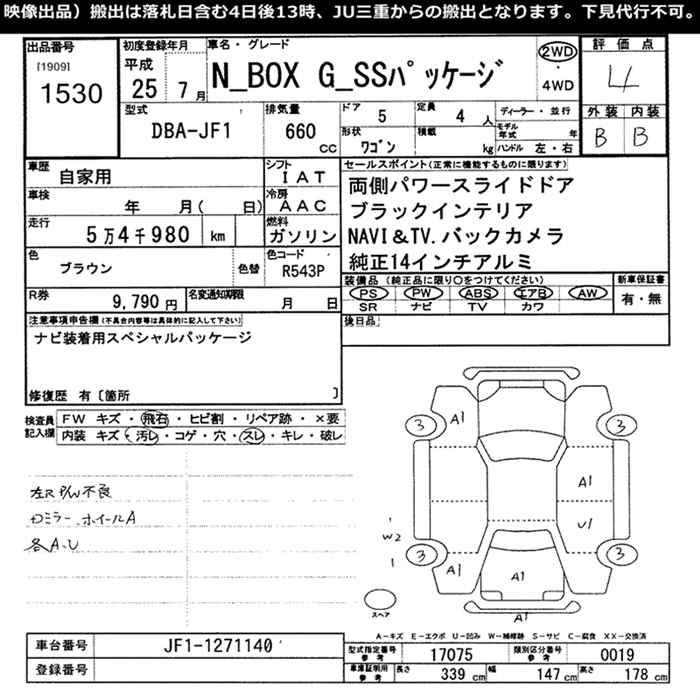 映像出品）搬出は落札日含む4日後13時、JU三重からの搬出となります。下見代行不可。
出品番号
[1909]
1530
初度登録年月
平成
25 7 月
車名・グレード
N_BOX G_SSパッケージ
2WD
・
4WD
評価点
4
外装 内装
B B
型式
DBA-JF1
排気量
660
cc
ドア
5
定員
4 人
形状
ワゴン
積載
kg
ディーラー・並行
モデル年式 年
ハンドル 左・右
車歴
自家用
シフト
IAT
車検
年 月( 日)
冷房
AAC
走行
5万4千980 km
燃料
ガソリン
色
ブラウン
色替
色コード
R543P
R券
9,790 円
名変通知期限
月 日
セールスポイント(正常に機能するものに限ります)
両側パワースライドドア
ブラックインテリア
NAVI&TV.バックカメラ
純正14インチアルミ
装備品 (純正品に限り○をつけてください)
PS PW ABS エアB AW
SR ナビ TV カワ
新車保証書
有・無
後日品
注意事項申告欄(不具合内容等は具体的に記入して下さい)
ナビ装着用スペシャルパッケージ
修復歴 有〔箇所 〕
検査員記入欄
FW キズ・飛石・ヒビ割・リペア跡・×要
内装 キズ・汚レ・コゲ・穴・スレ・キレ・破レ
左R P/W不良
ドミラー ホイールA
各A.U
3
A1
3
A1
U1
W2
1
3
A1
A1
3
スペア
A1
A-キズ E-エクボ U-凹み W-補修跡 S-サビ C-腐食 XX-交換済
車台番号
JF1-1271140
登録番号
型式指定番号
参考
17075
類別区分番号
参考
0019
車庫証明用
参考
長さ
339 cm
幅
147 cm
高さ
178 cm